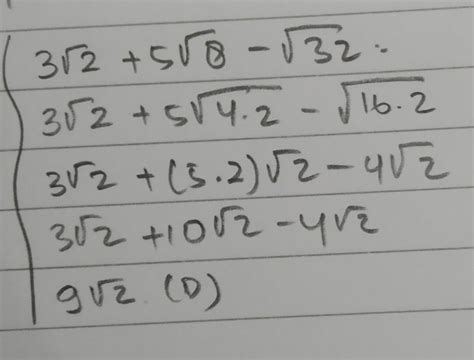 3√2 + 5√8 - √32 .
3√2 + 5√4.2 - √16.2
3√2 + (5.2)√2 - 4√2
3√2 + 10√2 - 4√2
9√2 (D)